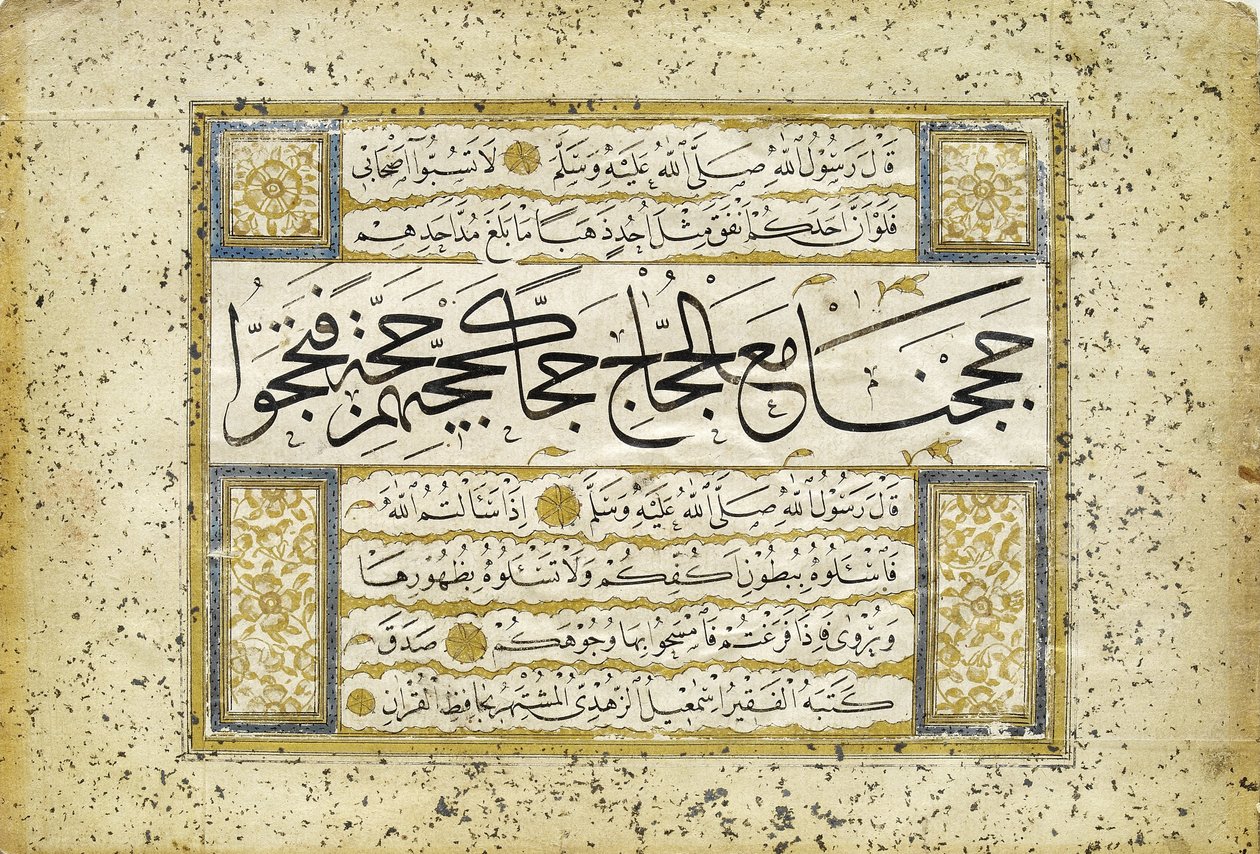 قَالَ رَسُولُ اللهِ صَلَّى اللهُ عَلَيْهِ وَسَلَّمَ لَا تَسُبُّوا اَصْحَابِي
فَلَوْ اَنَّ اَحَدَكُمْ اَنْفَقَ مِثْلَ اُحُدٍ ذَهَبًا مَا بَلَغَ مُدَّ اَحَدِهِمْ
حَجَجْنَا مَعَ الْحُجَّاجِ حِجَاجًا
قَالَ رَسُولُ اللهِ صَلَّى اللهُ عَلَيْهِ وَسَلَّمَ اِذَا سَئَالْتُمُ اللهَ
فَاسْئَلُوهُ بِبُطُونِ اَكُفِّكُمْ وَلَا تَسْئَلُوهُ بِظُهُورِهَا
وَيُرْوٰى فَاِذَا فَرَغْتُمْ فَامْسَحُوا بِهَا وُجُوْهَكُمْ صَدَقَ
كَتَبَهُ الْفَقِيرُ اِسْمٰعِيلُ الزُّهْدِيُّ الْمُشْتَهِرُ بِحَافِظِ الْقُرْاٰنِ